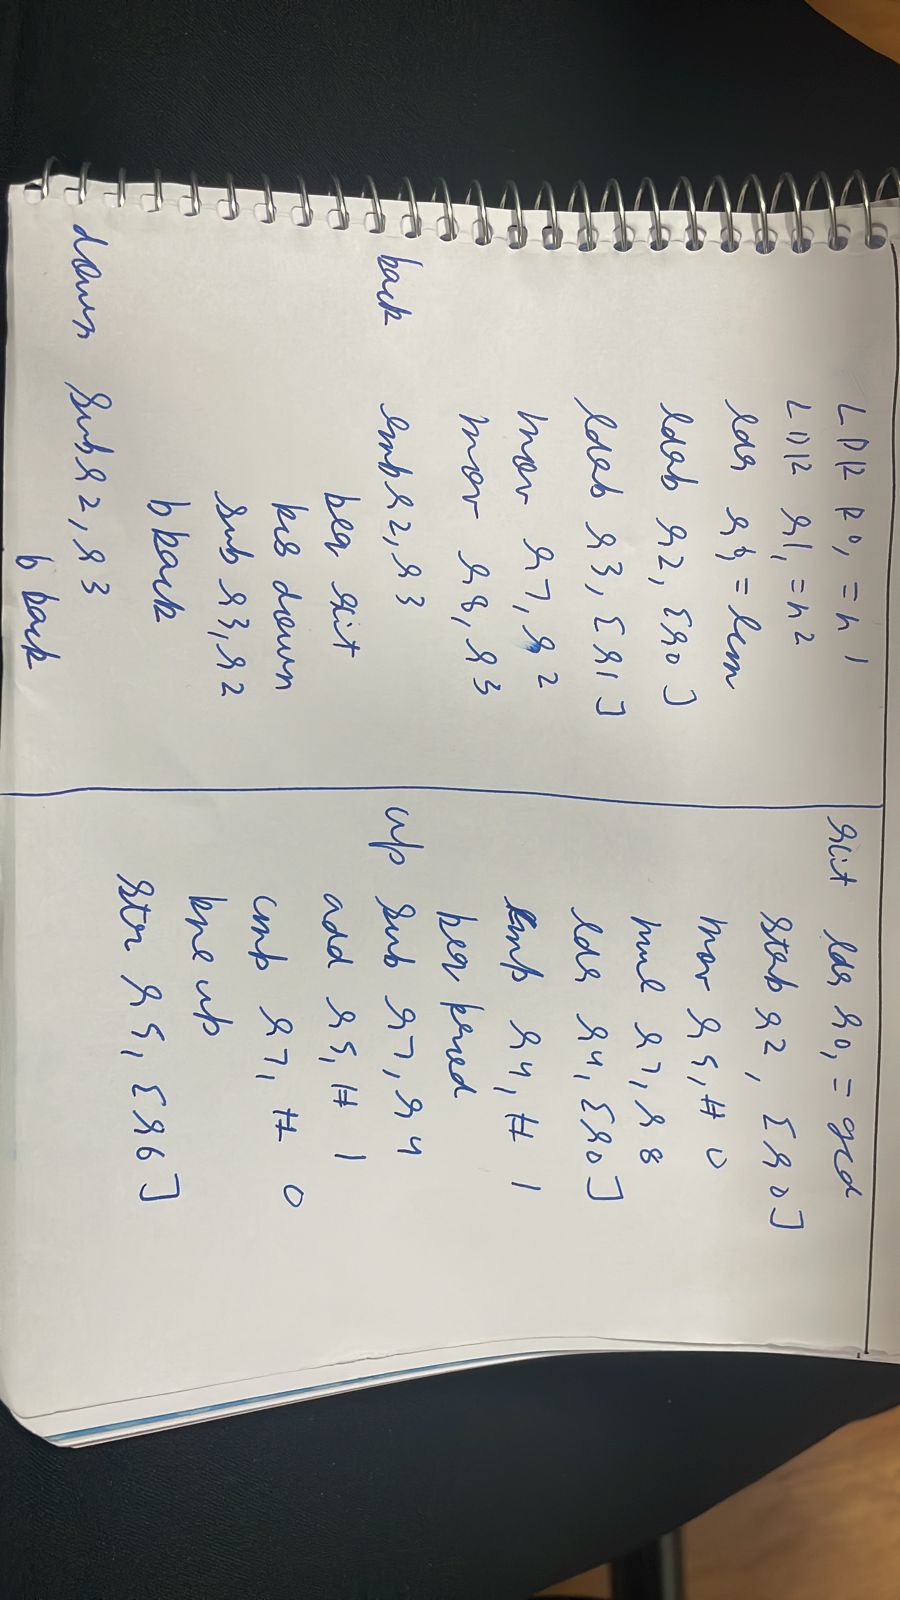 LDR R0, = n1
LDR r1, = n2
ldr r6, = lcm
ldrb r2, [r0]
ldrb r3, [r1]
mov r7, r2
mov r8, r3
back cmp r2, r3
beq exit
bcs down
sub r3, r2
b back
down sub r2, r3
b back
exit ldr r0, = gcd
strb r2, [r0]
mov r5, # 0
mul r7, r8
ldr r4, [r0]
cmp r4, # 1
beq
up sub r7, r4
add r5, # 1
cmp r7, # 0
bne up
str r5, [r6]